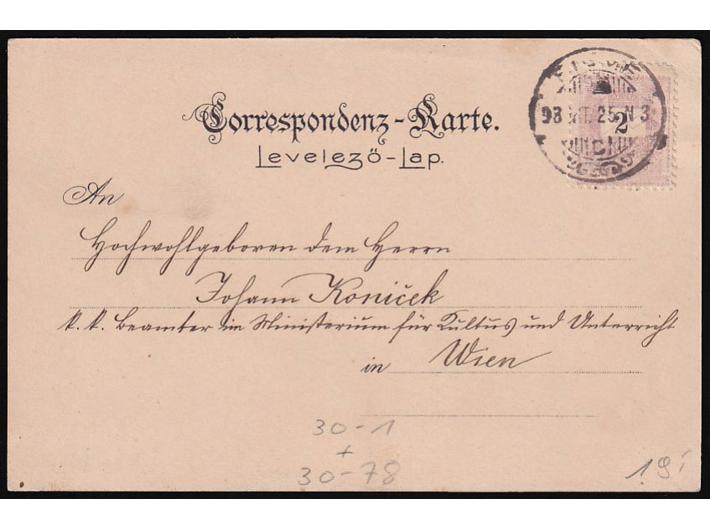 Correspondenz-Karte.
Levelező-Lap.
FIUME
98 25 N 3
2
An
Hochwohlgeboren dem Herrn
Johann Koníček
k. k. Beamter im Ministerium für Kultus und Unterricht
in Wien
30-1
+
30-78